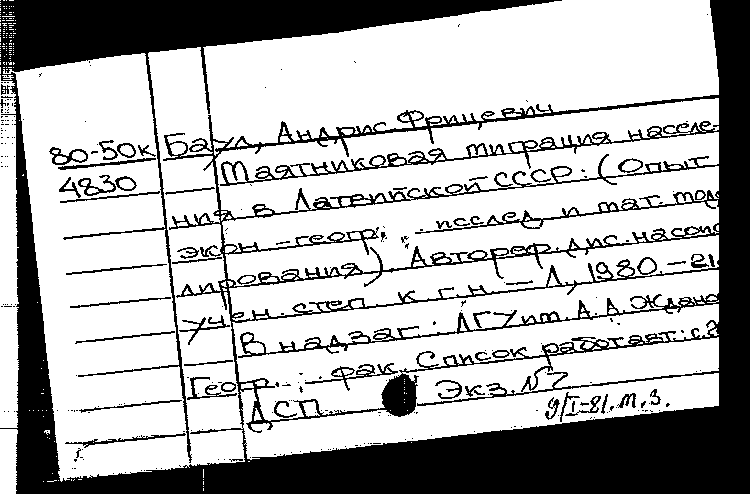 80-50к Баул, Андрис Фрицевич
4830 Маятниковая миграция населе-
ния в Латвийской ССР: (Опыт
экон-геогр. исслед. и мат. мод
лирования). Автореф. дис. на соис
учен. степ. к.г.н. — Л., 1980. — 21
В надзаг.: ЛГУ им. А.А. Ждано
Геогр. фак. Список работ авт.: с.
ДСП Экз. №
9/I-81. М.З.